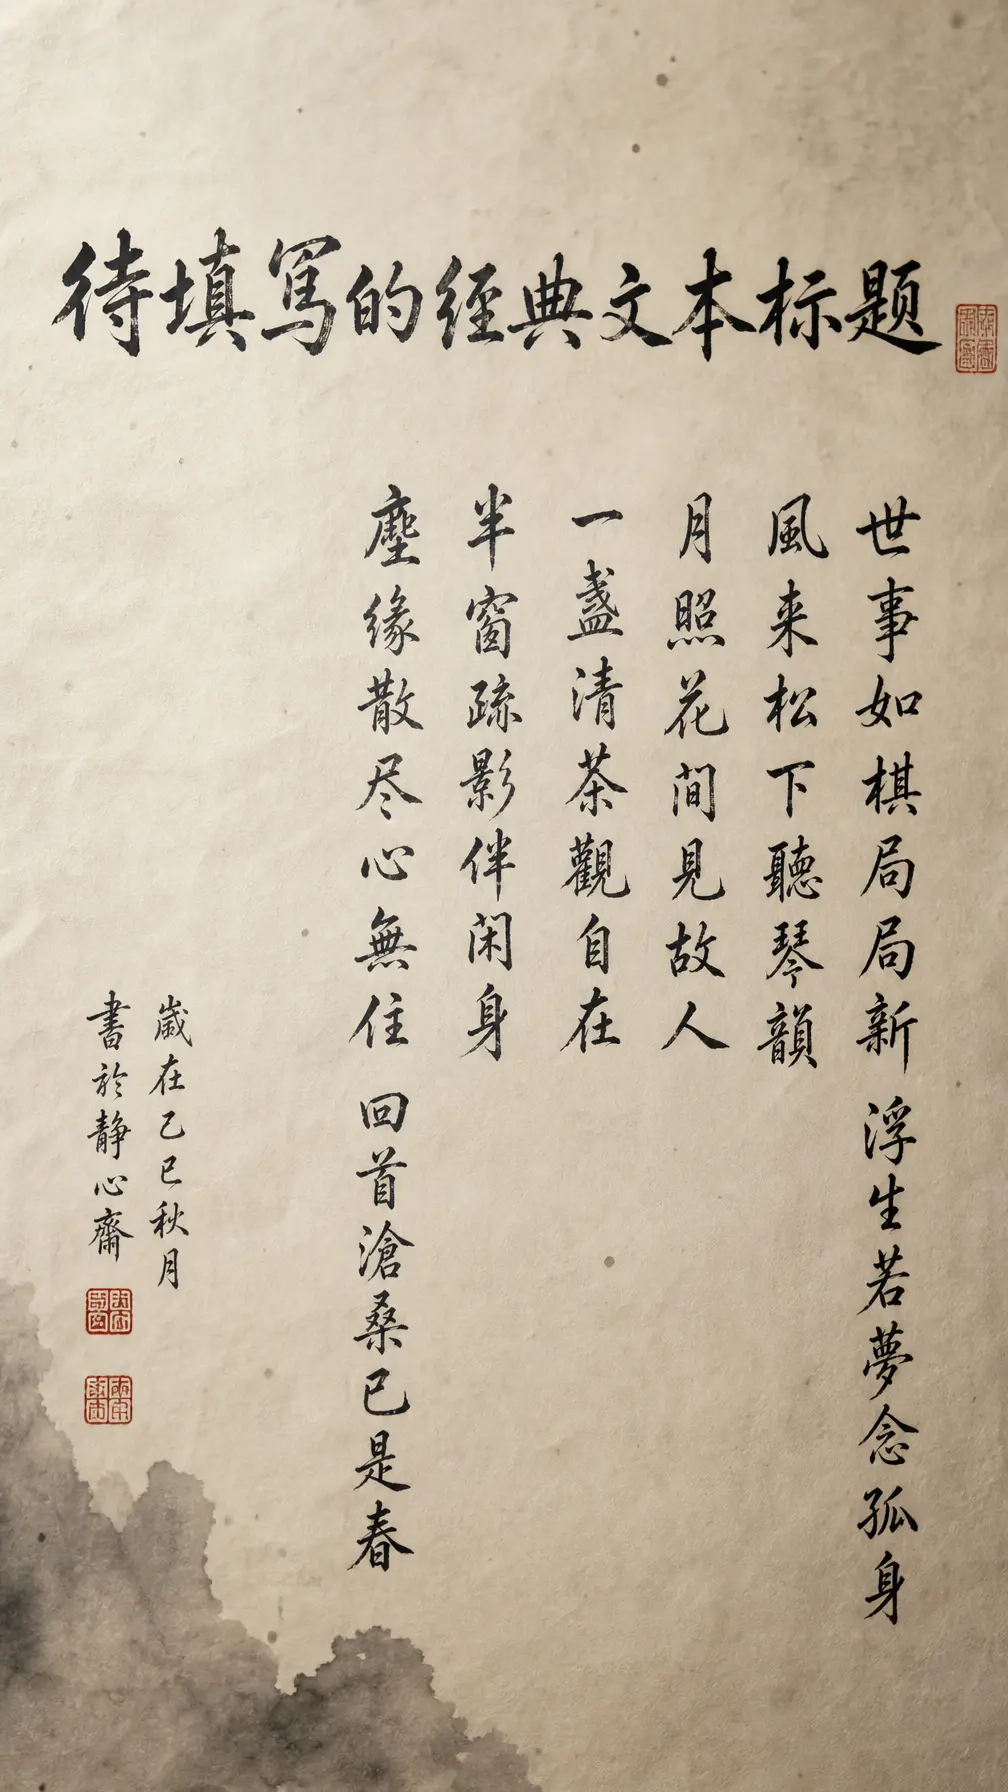 待填写的經典文本标题
世事如棋局局新 浮生若夢念孤身
風来松下聽琴韻
月照花間見故人
一盞清茶觀自在
半窗疏影伴闲身
塵缘散尽心無住 回首滄桑已是春
歲在乙巳秋月
書於静心齋